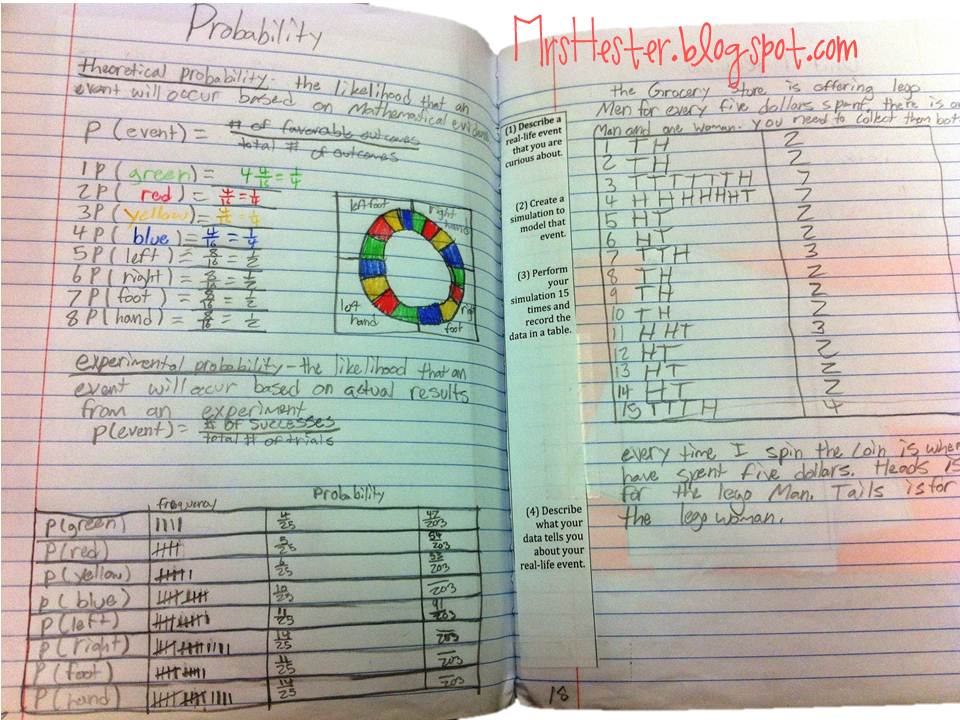 Probability
theoretical probability- the likelihood that an
event will occur based on Mathematical
P (event) = # of favorable outcomes
total # of outcomes
1 P( green)= 4 4/16 = 1/4
2 P( red )= 4/16 = 1/4
3 P( yellow)= 4/16 = 1/4
4 P( blue )= 4/16 = 1/4
5 P( left )= 8/16 = 1/2
6 P( right)= 8/16 = 1/2
7 P( foot )= 8/16 = 1/2
8 P( hand)= 8/16 = 1/2
left foot
right hand
left hand
foot
experimental probability- the likelihood that an
event will occur based on actual results
from an experiment
p(event)= # of successes
total # of trials
frequency Probability
P(green) IIII 4/25 42/203
P(red) 5/25 54/203
P(yellow) 6/25 /203
P(blue) 10/25 /203
P(left) 11/25 91/203
P(right) 14/25 /203
P(foot) 11/25 /203
P(hand) 14/25 /203
MrsHester.blogspot.com
the Grocery Store is offering lego
Men for every five dollars spent, there is
Man and one woman. you need to collect them
(1) Describe a
real-life event
that you are
curious about.
(2) Create a
simulation to
model that
event.
(3) Perform
your
simulation 15
times and
record the
data in a table.
(4) Describe
what your
data tells you
about your
real-life event.
1 T H 2
2 T H 2
3 T T T T T T H 7
4 H H H H H H T 7
5 H T 2
6 H T 2
7 T T H 3
8 T H 2
9 T H 2
10 T H 2
11 H H T 3
12 H T 2
13 H T 2
14 H T 2
15 T T T H 4
every time I spin the coin is when
have spent five dollars. Heads is
for the lego Man. Tails is for
the lego woman.
18